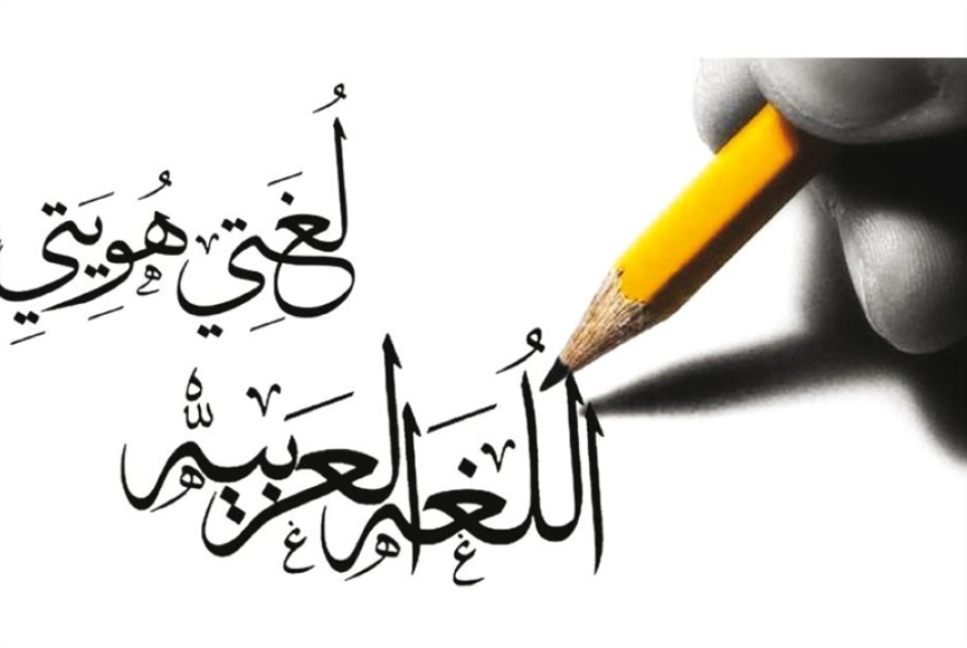 لُغَتِي هُوِيَتِي
اللُغَه العَربيه